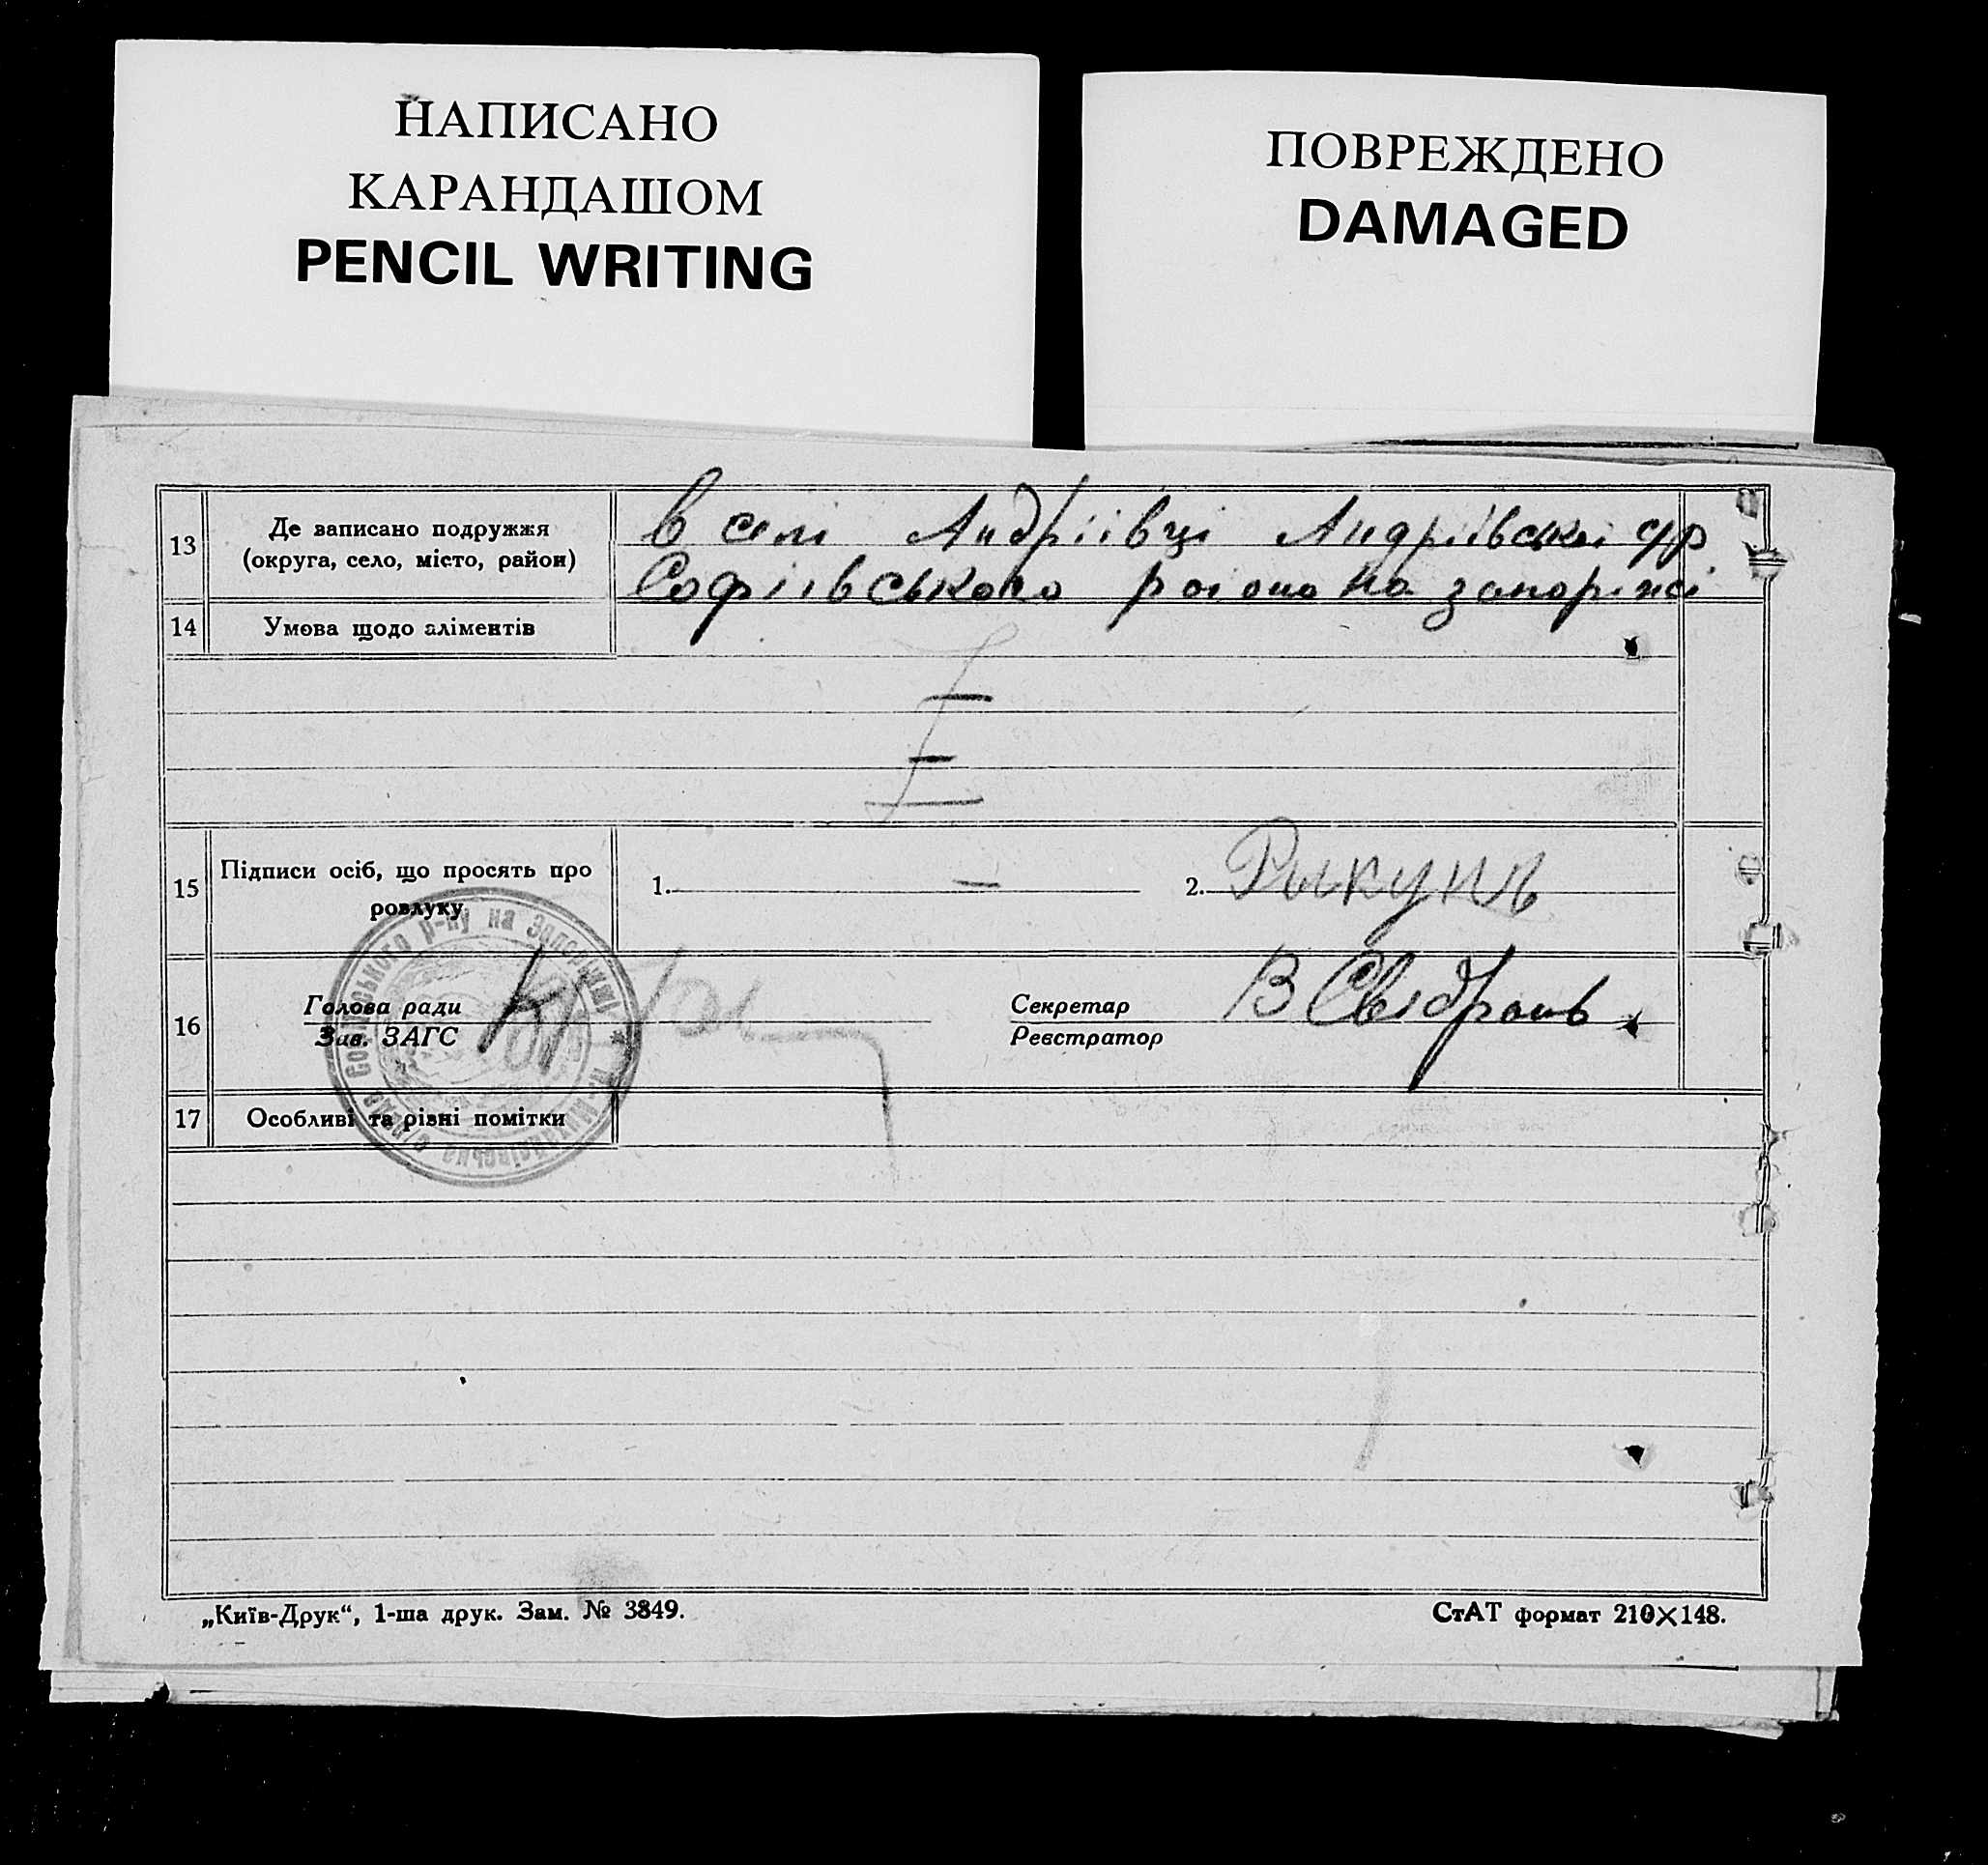 НАПИСАНО
КАРАНДАШОМ
PENCIL WRITING
ПОВРЕЖДЕНО
DAMAGED
13
Де записано подружжя
(округа, село, місто, район)
в селі Андріївці Андріївської с/р
Софіївського району на запоріжжі
14
Умова щодо аліментів
15
Підписи осіб, що просять про
розлуку
1. —
2. Рикунь
16
Голова ради
Зав. ЗАГС
Секретар
Реєстратор
17
Особливі та різні помітки
Софіївського р-ну на Запоріжжі
„Київ-Друк“, 1-ша друк. Зам. № 3849.
СтАТ формат 210×148.